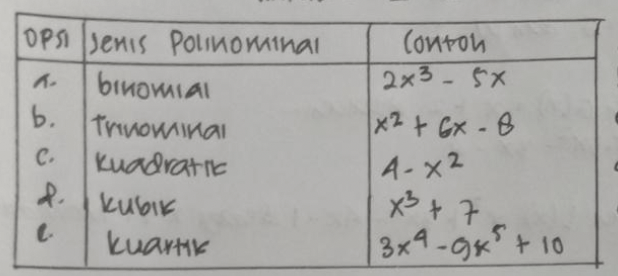 OPSI Jenis Polinominal Contoh
a. binomial 2x³ - 5x
b. Trinominal x² + 6x - 8
c. kuadratik 4 - x²
d. kubik x³ + 7
e. kuartik 3x⁴ - 9x⁵ + 10